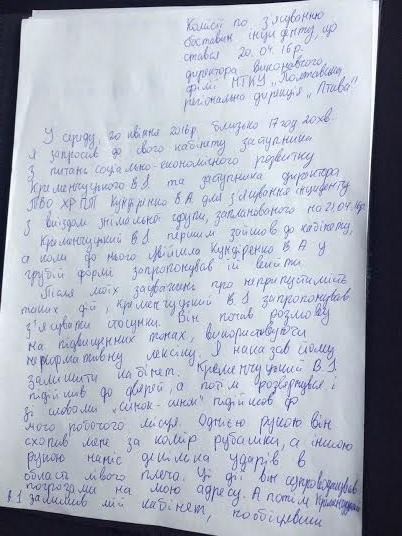 Комісії по з'ясуванню
обставин інциденту, що
стався 20.04.16р.
директора виконавчого
філії НТКУ „Полтавська
регіональна дирекція „Лтава"
У середу, 20 квітня 2016р, близько 17 год 20 хв.
я запросив до свого кабінету заступника
з питань соціально-економічного розвитку
Кременчуцького В.І та заступника директора
ТВО ХРПП Кундіренко В А для з'ясування інциденту
з виїздом знімальної групи, запланованого на 21.04.16р.
Кременчуцький В І першим зайшов до кабінету,
а коли до нього увійшла Кундіренко В А у
грубій формі запропонував їй вийти.
Після моїх зауважень про неприпустимість
таких дій, Кременчуцький В І запропонував
з'ясувати стосунки. Він почав розмову
на підвищених тонах, використовуючи
ненормативну лексику. Я наказав йому
залишити кабінет. Кременчуцький В.І
підійшов до дверей, а потім розвернувся і
зі словами підійшов до
мого робочого місця. Однією рукою він
схопив мене за комір рубашки, а іншою
рукою наніс декілька ударів в
область лівого плеча. Ці дії він супроводжував
погрозами на мою адресу. А потім Кременчуцький
В.І залишив мій кабінет, пообіцявши